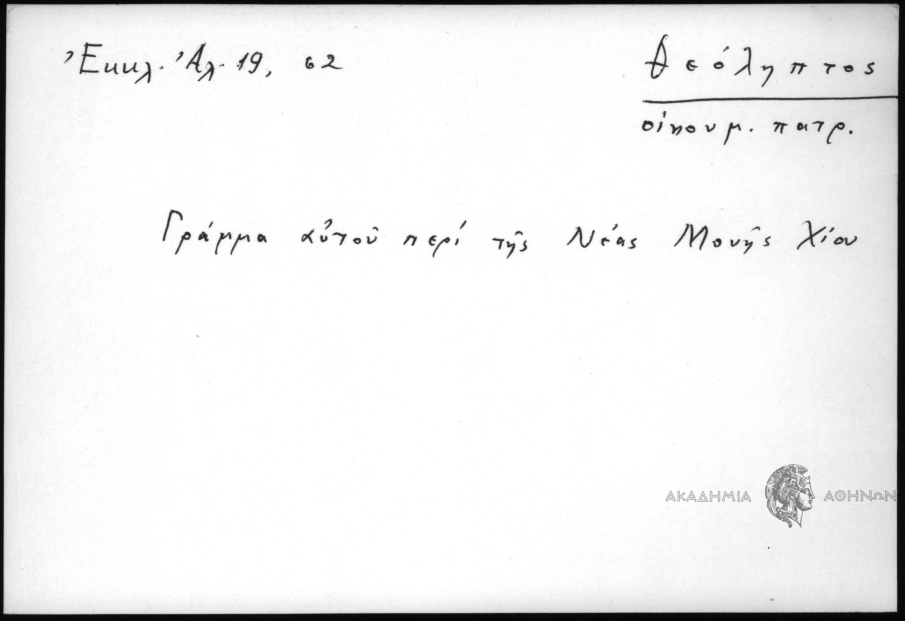 Ἐκκλ. Ἀλ. 19, 62
Θεόληπτος
οἰκουμ. πατρ.
Γράμμα αὐτοῦ περί τῆς Νέας Μονῆς Χίου
ΑΚΑΔΗΜΙΑ ΑΘΗΝΩΝ